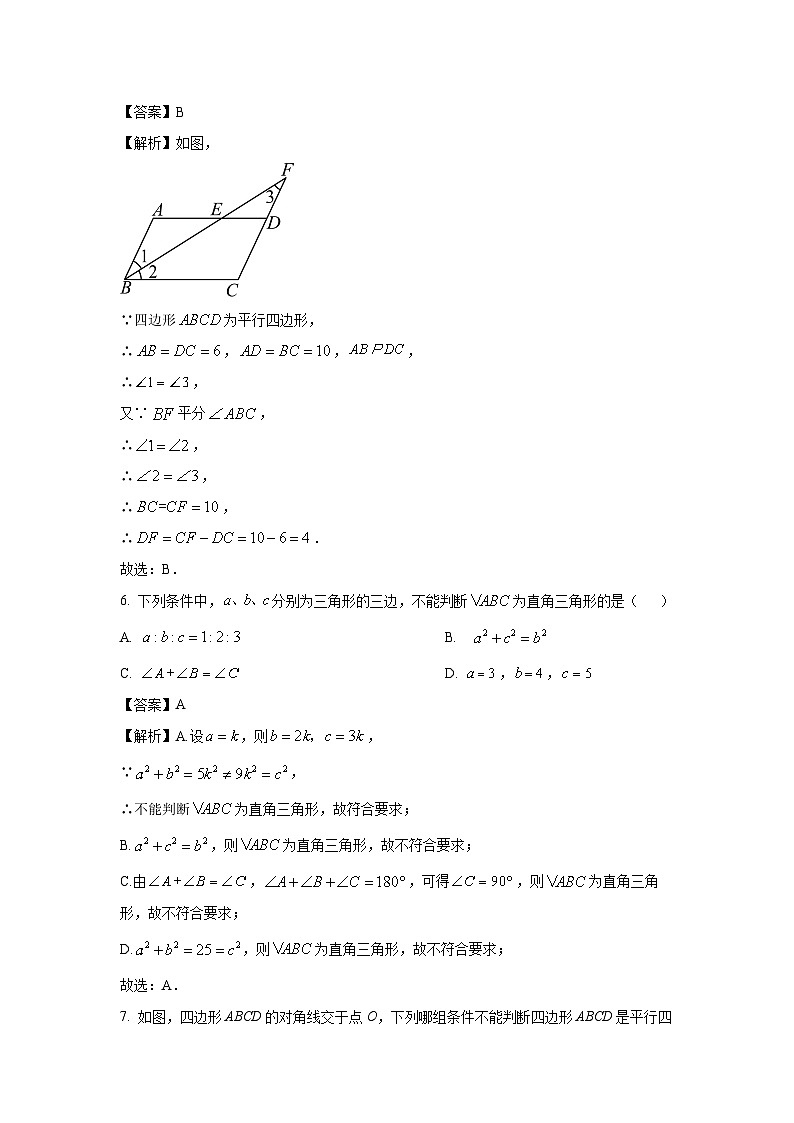 【答案】B
【解析】如图，
F
3
A E
D
1
2
B C
∵四边形ABCD为平行四边形，
∴AB = DC = 6，AD = BC = 10，AB∥DC，
∴∠1 = ∠3，
又∵ BF平分∠ABC，
∴∠1=∠2，
∴∠2 = ∠3，
∴BC=CF = 10，
∴DF = CF − DC = 10 − 6 = 4．
故选：B．
6. 下列条件中，a、b、c分别为三角形的三边，不能判断VABC为直角三角形的是（ ）
A. a : b : c = 1: 2 : 3 B. a² + c² = b²
C. ∠A +∠B = ∠C D. a = 3，b = 4，c = 5
【答案】A
【解析】A.设a = k，则b = 2k，c = 3k，
∵a² + b² = 5k² ≠ 9k² = c²，
∴不能判断VABC为直角三角形，故符合要求；
B. a² + c² = b²，则VABC为直角三角形，故不符合要求；
C.由∠A +∠B = ∠C，∠A+∠B +∠C =180°，可得∠C = 90°，则VABC为直角三角
形，故不符合要求；
D. a² + b² = 25 = c²，则VABC为直角三角形，故不符合要求；
故选：A．
7. 如图，四边形ABCD的对角线交于点O，下列哪组条件不能判断四边形ABCD是平行四